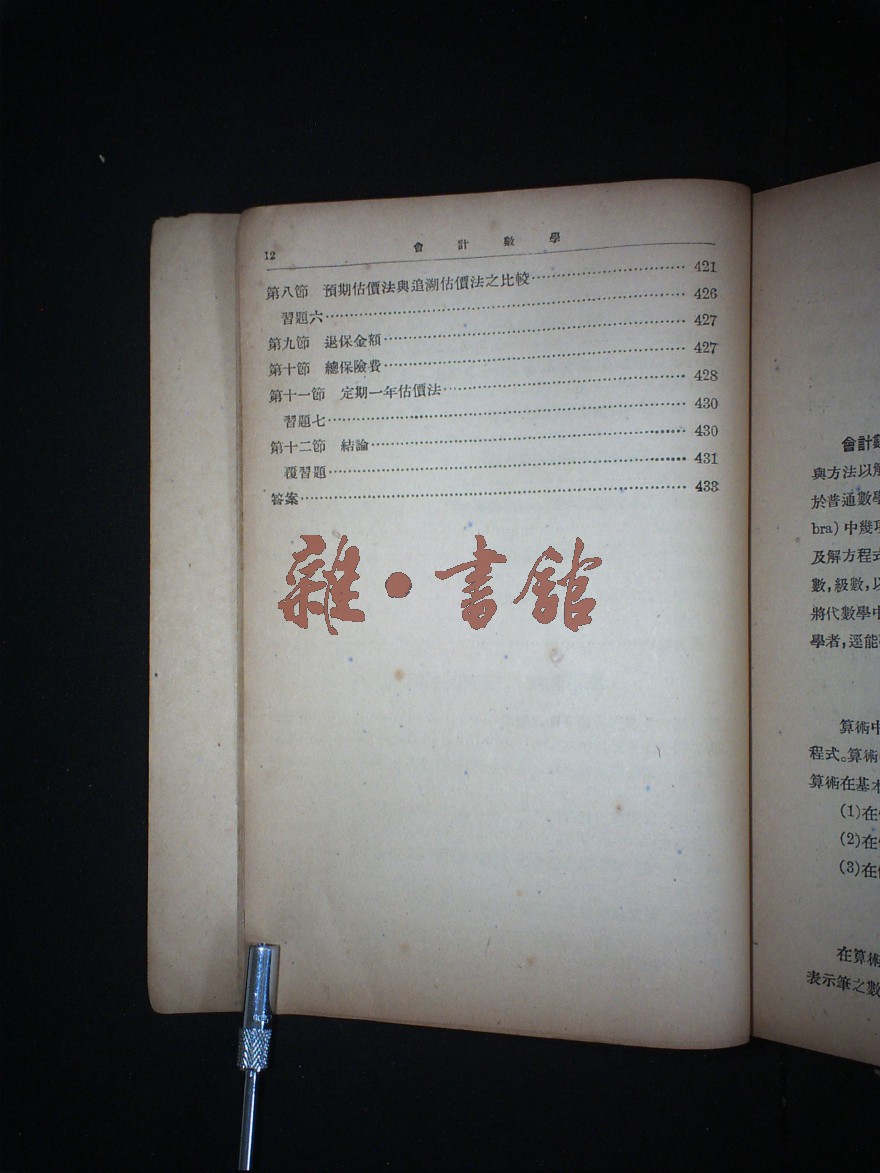 12
會計數學
第八節 預期估價法與追溯估價法之比較 421
習題六 426
第九節 退保金額 427
第十節 總保險費 427
第十一節 定期一年估價法 428
習題七 430
第十二節 結論 430
覆習題 431
答案 433
雜·書館
會計
與方法以
於普通數學
bra)中幾
及解方程式
數,級數,以
將代數學中
學者,逕能
算術中
程式。算術
算術在基本
(1)在
(2)在
(3)在
在算術
表示筆之數